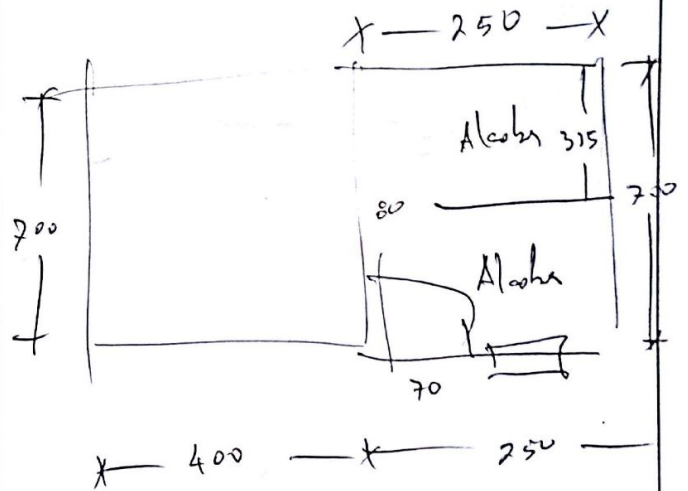 X — 250 — X
Alcoba 315
700
80
700
Alcoba
70
X — 400 — X — 250 —